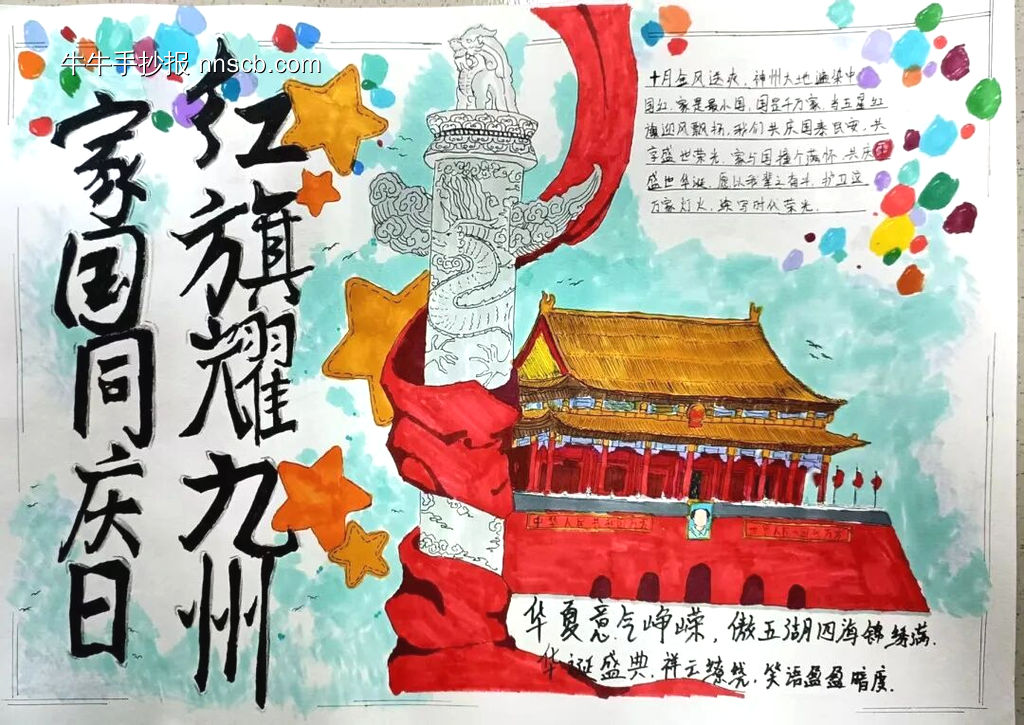 牛牛手抄报 nnscb.com
红旗耀九州
家国同庆日
十月金风送爽，神州大地遍染中
国红，家是最小国，国是千万家，当五星红
旗迎风飘扬，我们共庆国泰民安，共
享盛世荣光，家与国撞个满怀，共庆
盛世华诞，愿以我辈之奋斗，护卫这
万家灯火，续写时代荣光．
中华人民共和国万岁
华夏意气峥嵘，傲五湖四海锦绣满．
华诞盛典，祥云缭绕，笑语盈盈暗度．